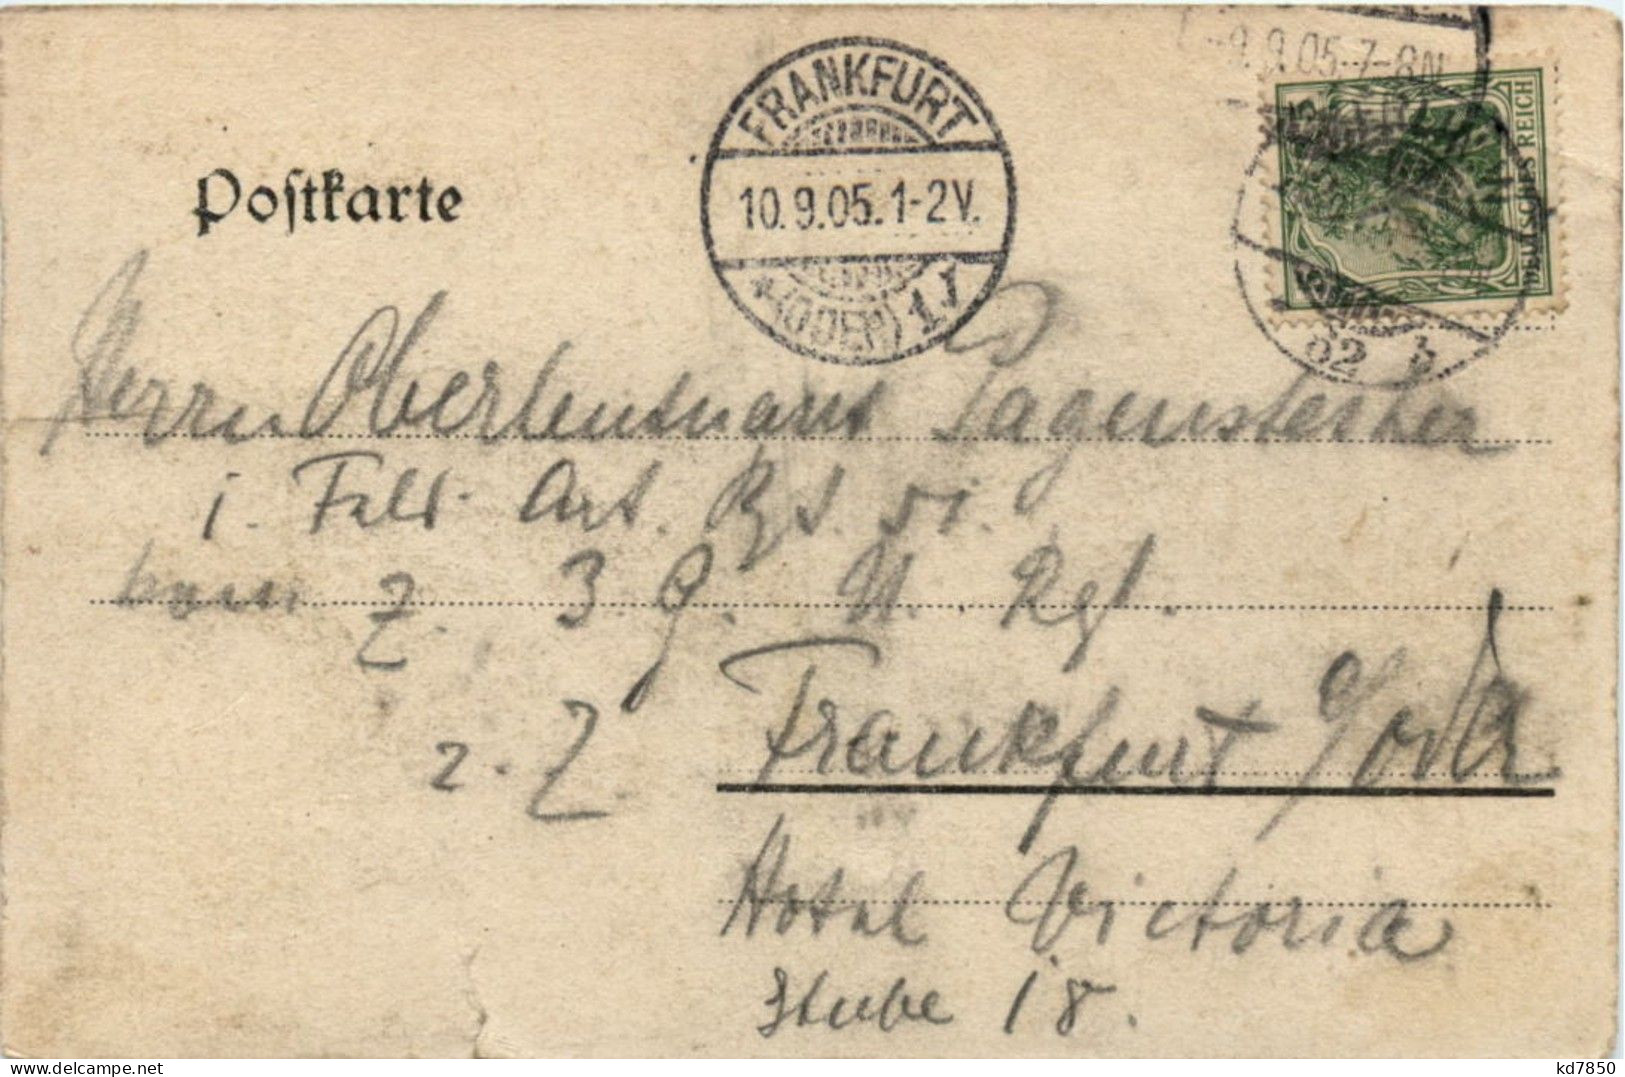 9.9.05.7-8N
DEUTSCHES REICH
FRANKFURT
10.9.05.1-2V.
(ODER) 1
Poſtkarte
Herrn Oberleutnant Pagenstecher
i. Feld Art. Rgt. 51.
kom. z. 3. G. U. Rgt.
Frankfurt a/Oder
z. Z.
Hotel Victoria
Stube 18.
kd7850